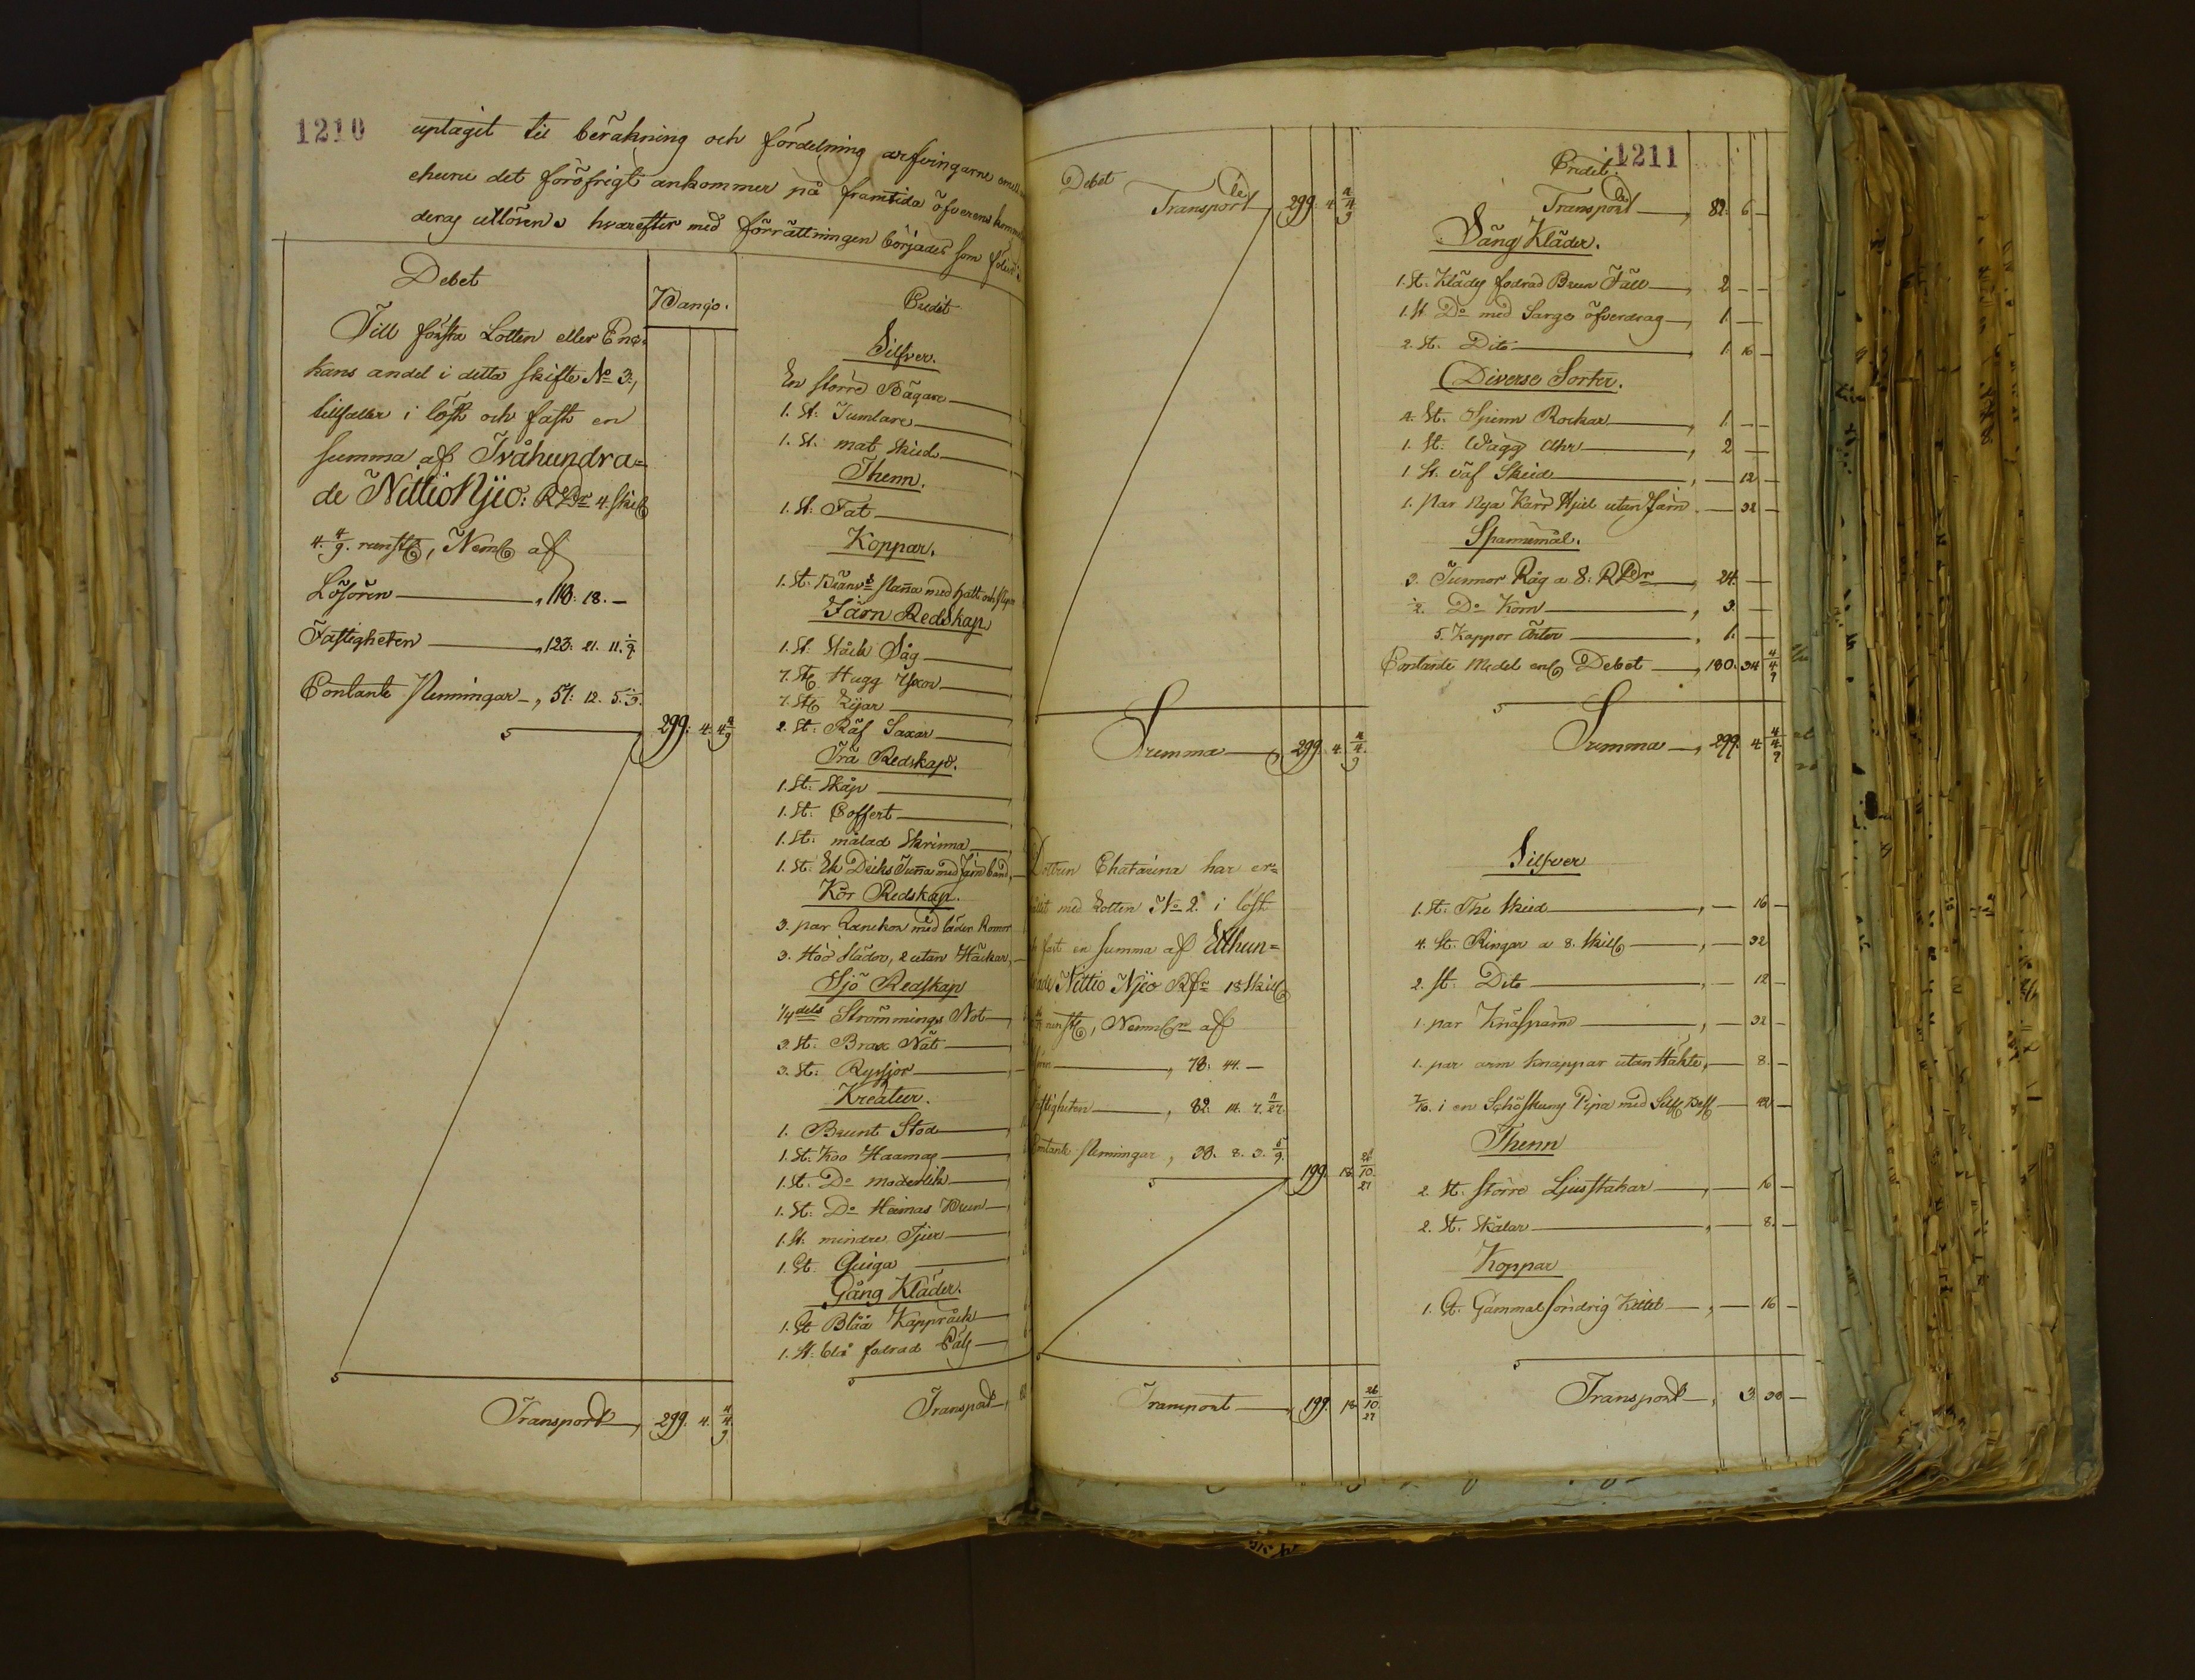 1210
uptagit til beräkning och fördelning arfvingarne
ehuru det föröfrigt ankommer på framtida
deras utlösen, hvarefter med förrättningen börjades som
Debet
Till första Lotten eller Enc-
kans andel i detta skifte No 3,
tillfaller i löst och fast en
summa af Tvåhundra-
de Nittio Njio: RDr 4. skill
4. 4/9. runst, Neml af
Lösören 118: 18. —
Fastigheten 123: 21. 11. 1/9
Contante Penningar 57: 12. 5. 1/3.
299: 4. 4 4/9
Transport 299: 4. 4 4/9
Banco.
Credit
Silfver.
En större Bägare
1. St: Tumlare
1. St: mat Skied
Thenn.
1. St: Fat
Koppar.
1. St: Bränvs Panna med hatt och
Järn Redskap
1. St: Ståck Såg
7. St Hugg Yxor
7. St Lijar
2. St: Räf Saxar
Trä Redskap.
1. St: Skåp
1. St: Coffert
1. St: målad Skrinna
1. St: Ek Dricks Tunna med Järn band
Kör Redskap.
3. par Ranckor med läder Romor
3. Höö slädor, 2 utan Häckar,
Sjö Redskap
1/4 dels Strömmings Not
3. St: Brax Nät
3. St: Ryssjor
Kreatur.
1. Brunt Stod
1. St: Koo Haamag
1. St: Do maderlik
1. St: Do Heimas Brun
1. St: mindre Tjur
1. St. Quiga
Gång Kläder.
1. St Blåå Kappråck
1. St: blå fodrad Päls
Transport
Debet
Transport 299. 4. 4 4/9
Summa 299. 4. 4 4/9
Dottren Chatarina har er-
med Lotten No 2. i löst
fast en summa af Etthun-
Nittio Njio RDr 18 Skill
runst, Neml af
78: 44. —
82. 14. 7. 1/27.
Penningar 38. 8. 3. 5/9.
199. 18 10 26/27
Transport 199. 18 10 26/27
1211
Credit.
Transport 82. 6 —
Säng Kläder.
1. St. Klädes fodrad Brun Fäll 2 — —
1. St Do med Sarges öfverdrag 1. —
2. St. Dito 1. 16 —
Diverse Sorter.
4. St. Spinn Rockar 1. — —
1. St. Wägg Uhr 2 —
1 St. väf Skeid — 12 —
1. Par Nya Kärr Hjul utan Järn — 32 —
Spannemål.
3. Tunnor Råg a 8: RDr 24. —
1/2. Do Korn 3. —
5. Kappor Ärter 1. —
Contante Medel enl Debet 180. 34 4 4/9
Summa 299. 4 4 4/9
Silfver
1. St. The Skied — 16 —
4. St. Ringar a 8. Skill — 32
2. St. Dito — 12 —
1. par Knäspänne — 32 —
1. par arm knappar utan Häkte — 8. —
i en Sjöskums Pipa med Silf Besl — 42 —
Thenn
2. St. större Ljusstakar — 16 —
2. St. Skålar — 8. —
Koppar
1. St. Gammal söndrig Kittel — 16 —
Transport 3 38 —